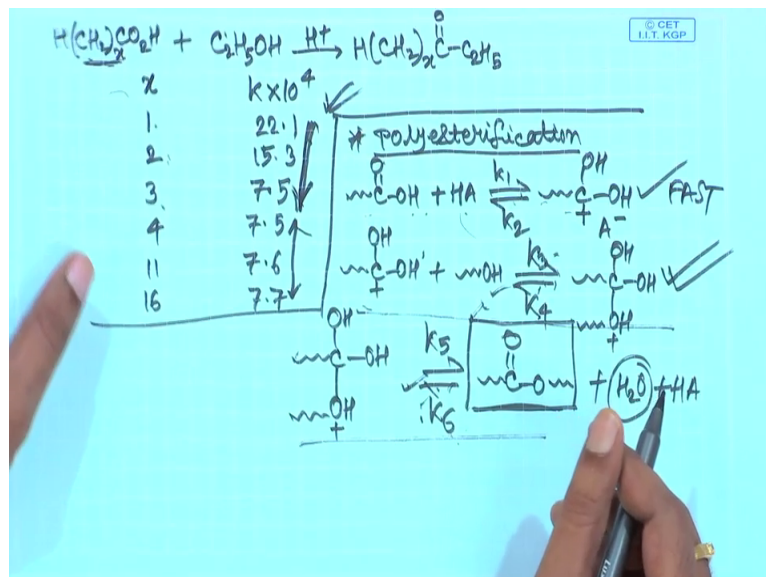 © CET
I.I.T. KGP
O
H(CH₂)ₓCO₂H + C₂H₅OH H⁺→ H(CH₂)ₓC-C₂H₅
x k×10⁴
1. 22.1
2. 15.3
3. 7.5
4 7.5
11 7.6
16 7.7
* polyesterification
O OH
C-OH + HA k₁ ⇌ k₂ C-OH FAST
+ A⁻
OH OH
C-OH + OH k₃ ⇌ k₄ C-OH
+ OH
+
OH O
C-OH k₅ ⇌ k₆ C-O + H₂O + HA
OH
+